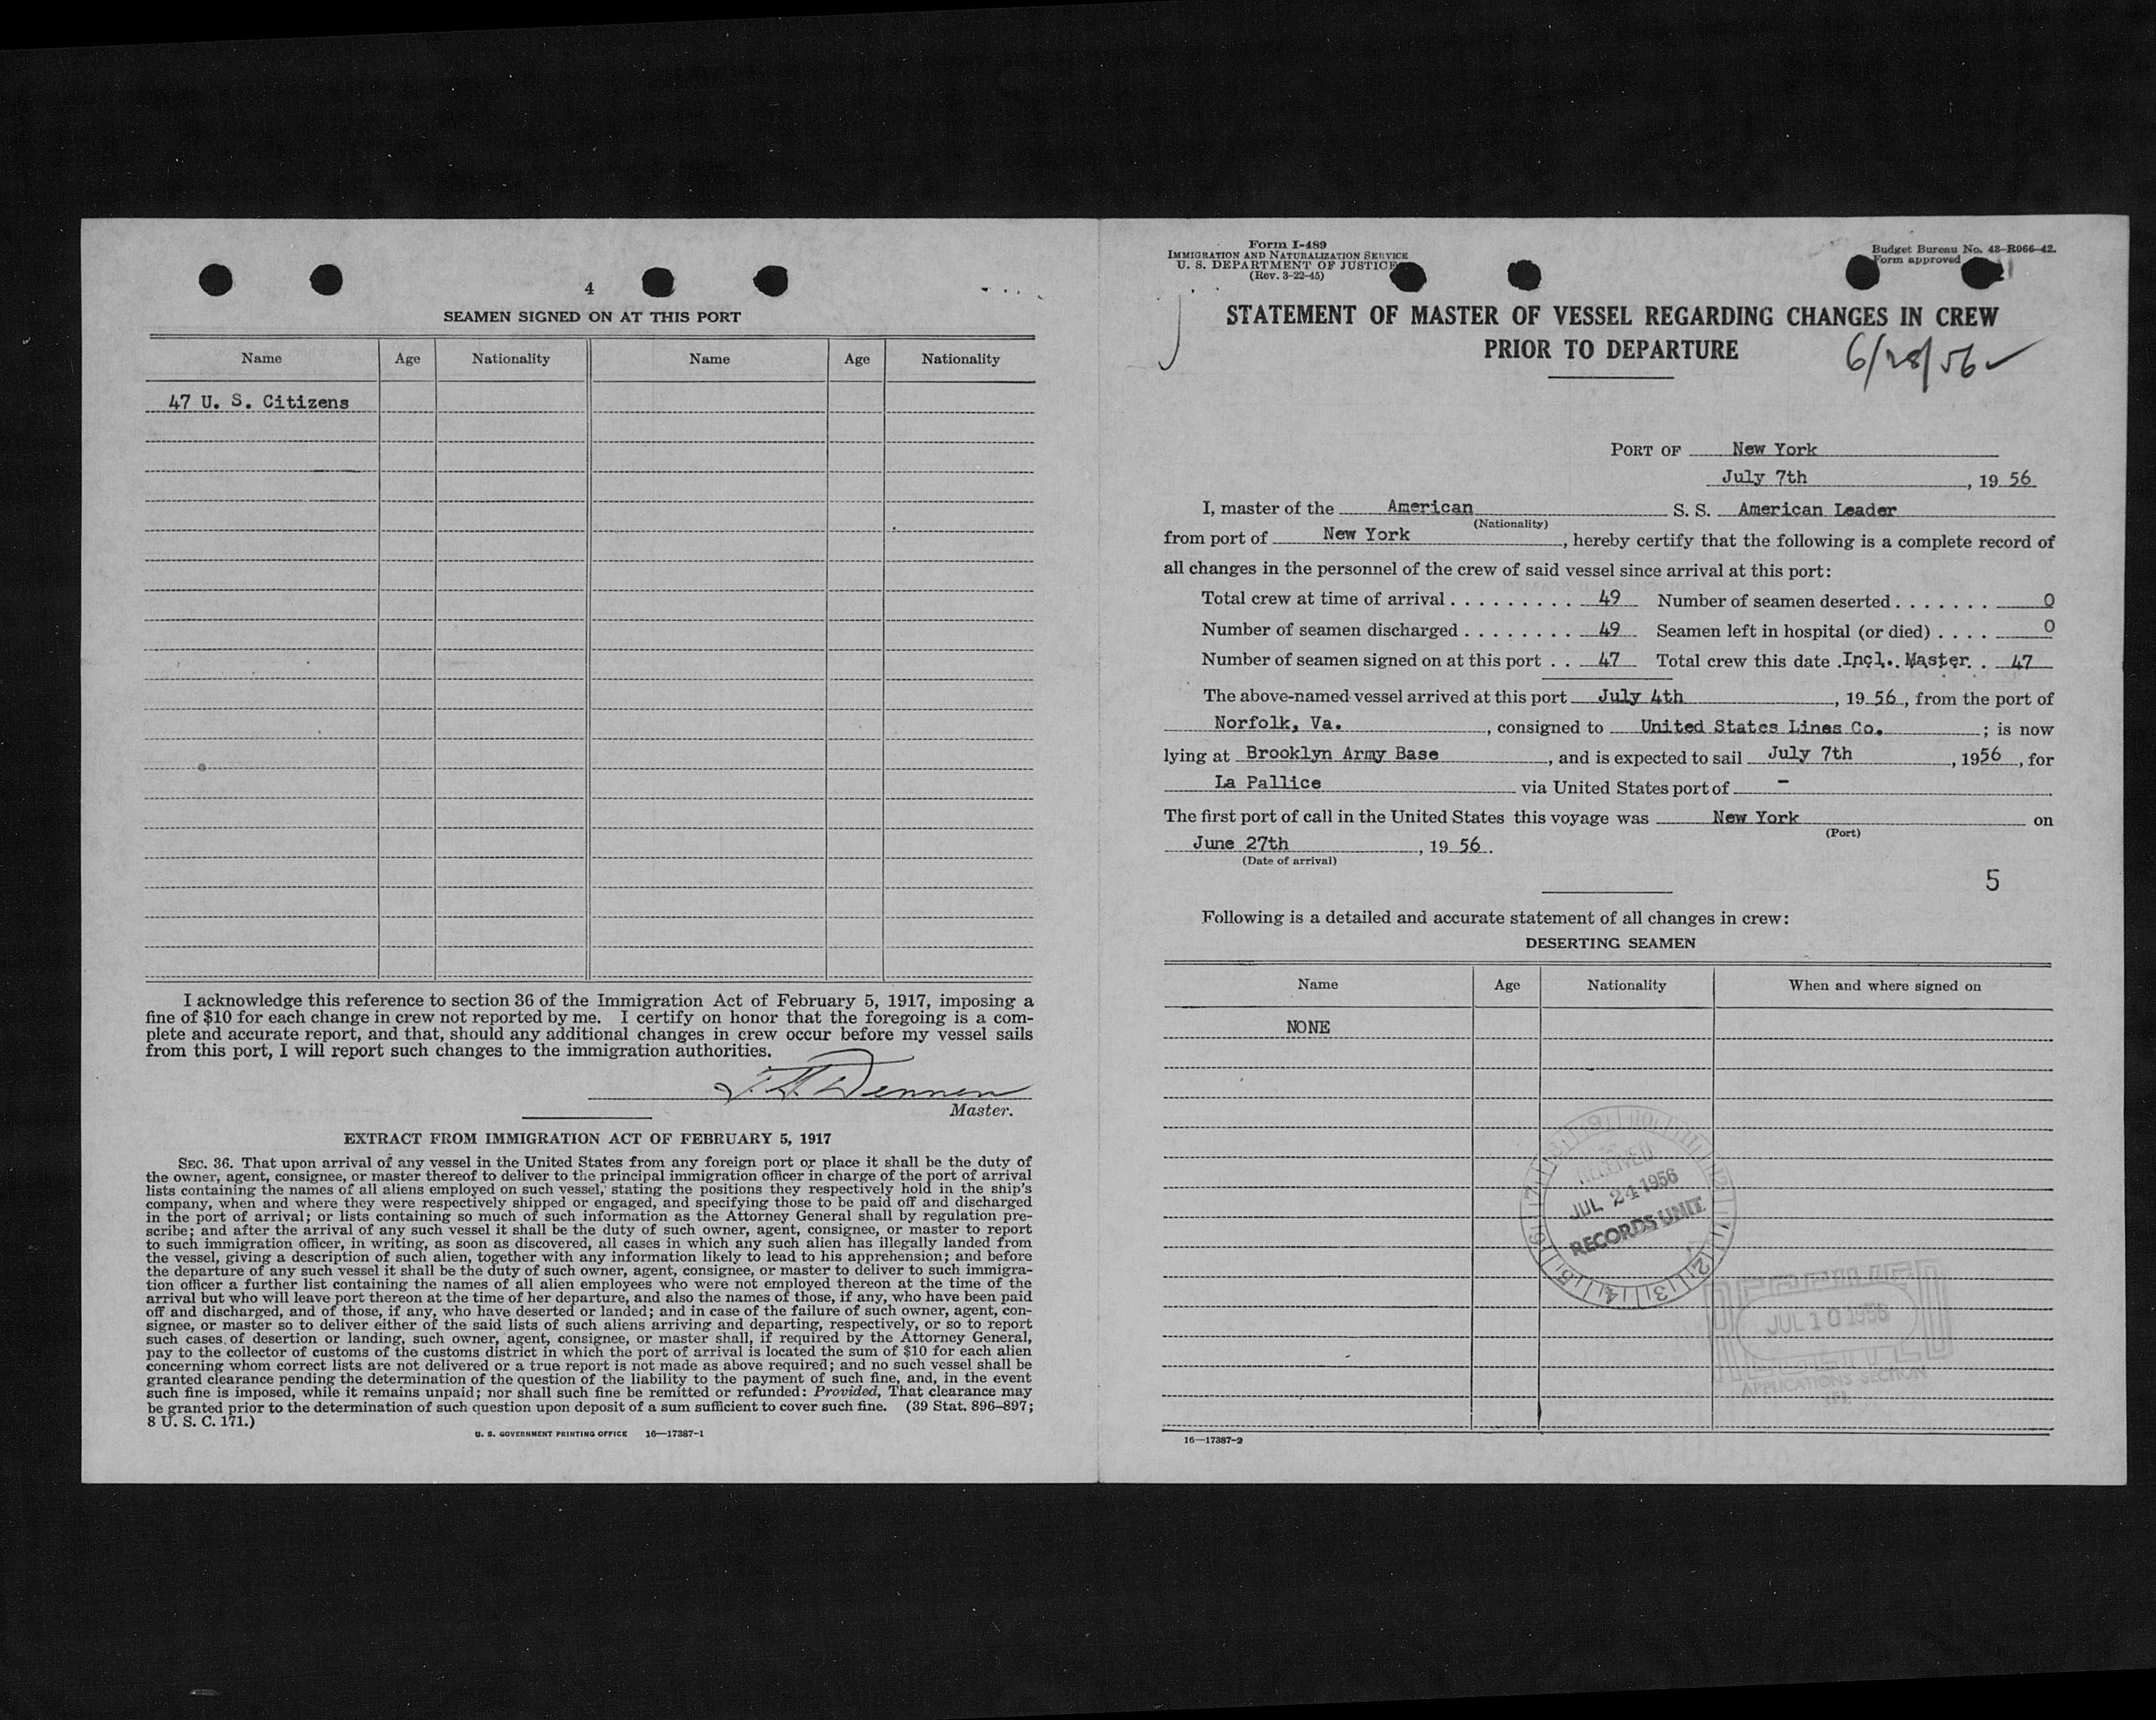 4
SEAMEN SIGNED ON AT THIS PORT
Name Age Nationality Name Age Nationality
47 U. S. Citizens
I acknowledge this reference to section 36 of the Immigration Act of February 5, 1917, imposing a
fine of $10 for each change in crew not reported by me. I certify on honor that the foregoing is a com-
plete and accurate report, and that, should any additional changes in crew occur before my vessel sails
from this port, I will report such changes to the immigration authorities.
Master.
EXTRACT FROM IMMIGRATION ACT OF FEBRUARY 5, 1917
SEC. 36. That upon arrival of any vessel in the United States from any foreign port or place it shall be the duty of
the owner, agent, consignee, or master thereof to deliver to the principal immigration officer in charge of the port of arrival
lists containing the names of all aliens employed on such vessel, stating the positions they respectively hold in the ship's
company, when and where they were respectively shipped or engaged, and specifying those to be paid off and discharged
in the port of arrival; or lists containing so much of such information as the Attorney General shall by regulation pre-
scribe; and after the arrival of any such vessel it shall be the duty of such owner, agent, consignee, or master to report
to such immigration officer, in writing, as soon as discovered, all cases in which any such alien has illegally landed from
the vessel, giving a description of such alien, together with any information likely to lead to his apprehension; and before
the departure of any such vessel it shall be the duty of such owner, agent, consignee, or master to deliver to such immigra-
tion officer a further list containing the names of all alien employees who were not employed thereon at the time of the
arrival but who will leave port thereon at the time of her departure, and also the names of those, if any, who have been paid
off and discharged, and of those, if any, who have deserted or landed; and in case of the failure of such owner, agent, con-
signee, or master so to deliver either of the said lists of such aliens arriving and departing, respectively, or so to report
such cases of desertion or landing, such owner, agent, consignee, or master shall, if required by the Attorney General,
pay to the collector of customs of the customs district in which the port of arrival is located the sum of $10 for each alien
concerning whom correct lists are not delivered or a true report is not made as above required; and no such vessel shall be
granted clearance pending the determination of the question of the liability to the payment of such fine, and, in the event
such fine is imposed, while it remains unpaid; nor shall such fine be remitted or refunded: Provided, That clearance may
be granted prior to the determination of such question upon deposit of a sum sufficient to cover such fine. (39 Stat. 896–897;
8 U. S. C. 171.)
U. S. GOVERNMENT PRINTING OFFICE 16—17387-1
Form I-489
IMMIGRATION AND NATURALIZATION SERVICE
U. S. DEPARTMENT OF JUSTICE
(Rev. 3-22-45)
Budget Bureau No. 43-R066-42.
Form approved
STATEMENT OF MASTER OF VESSEL REGARDING CHANGES IN CREW
PRIOR TO DEPARTURE
6/28/56
PORT OF New York
July 7th, 19 56
I, master of the American S. S. American Leader
(Nationality)
from port of New York, hereby certify that the following is a complete record of
all changes in the personnel of the crew of said vessel since arrival at this port:
Total crew at time of arrival . . . . . . . . . 49 Number of seamen deserted . . . . . . . 0
Number of seamen discharged . . . . . . . . 49 Seamen left in hospital (or died) . . . . 0
Number of seamen signed on at this port . . 47 Total crew this date Incl. Master. . 47
The above-named vessel arrived at this port July 4th, 19 56, from the port of
Norfolk, Va., consigned to United States Lines Co.; is now
lying at Brooklyn Army Base, and is expected to sail July 7th, 1956, for
La Pallice via United States port of –.
The first port of call in the United States this voyage was New York on
(Port)
June 27th, 19 56.
(Date of arrival)
5
Following is a detailed and accurate statement of all changes in crew:
DESERTING SEAMEN
Name Age Nationality When and where signed on
NONE
RECEIVED
JUL 24 1956
RECORDS UNIT
RECEIVED
JUL 10 1956
APPLICATIONS SECTION
16—17387-2